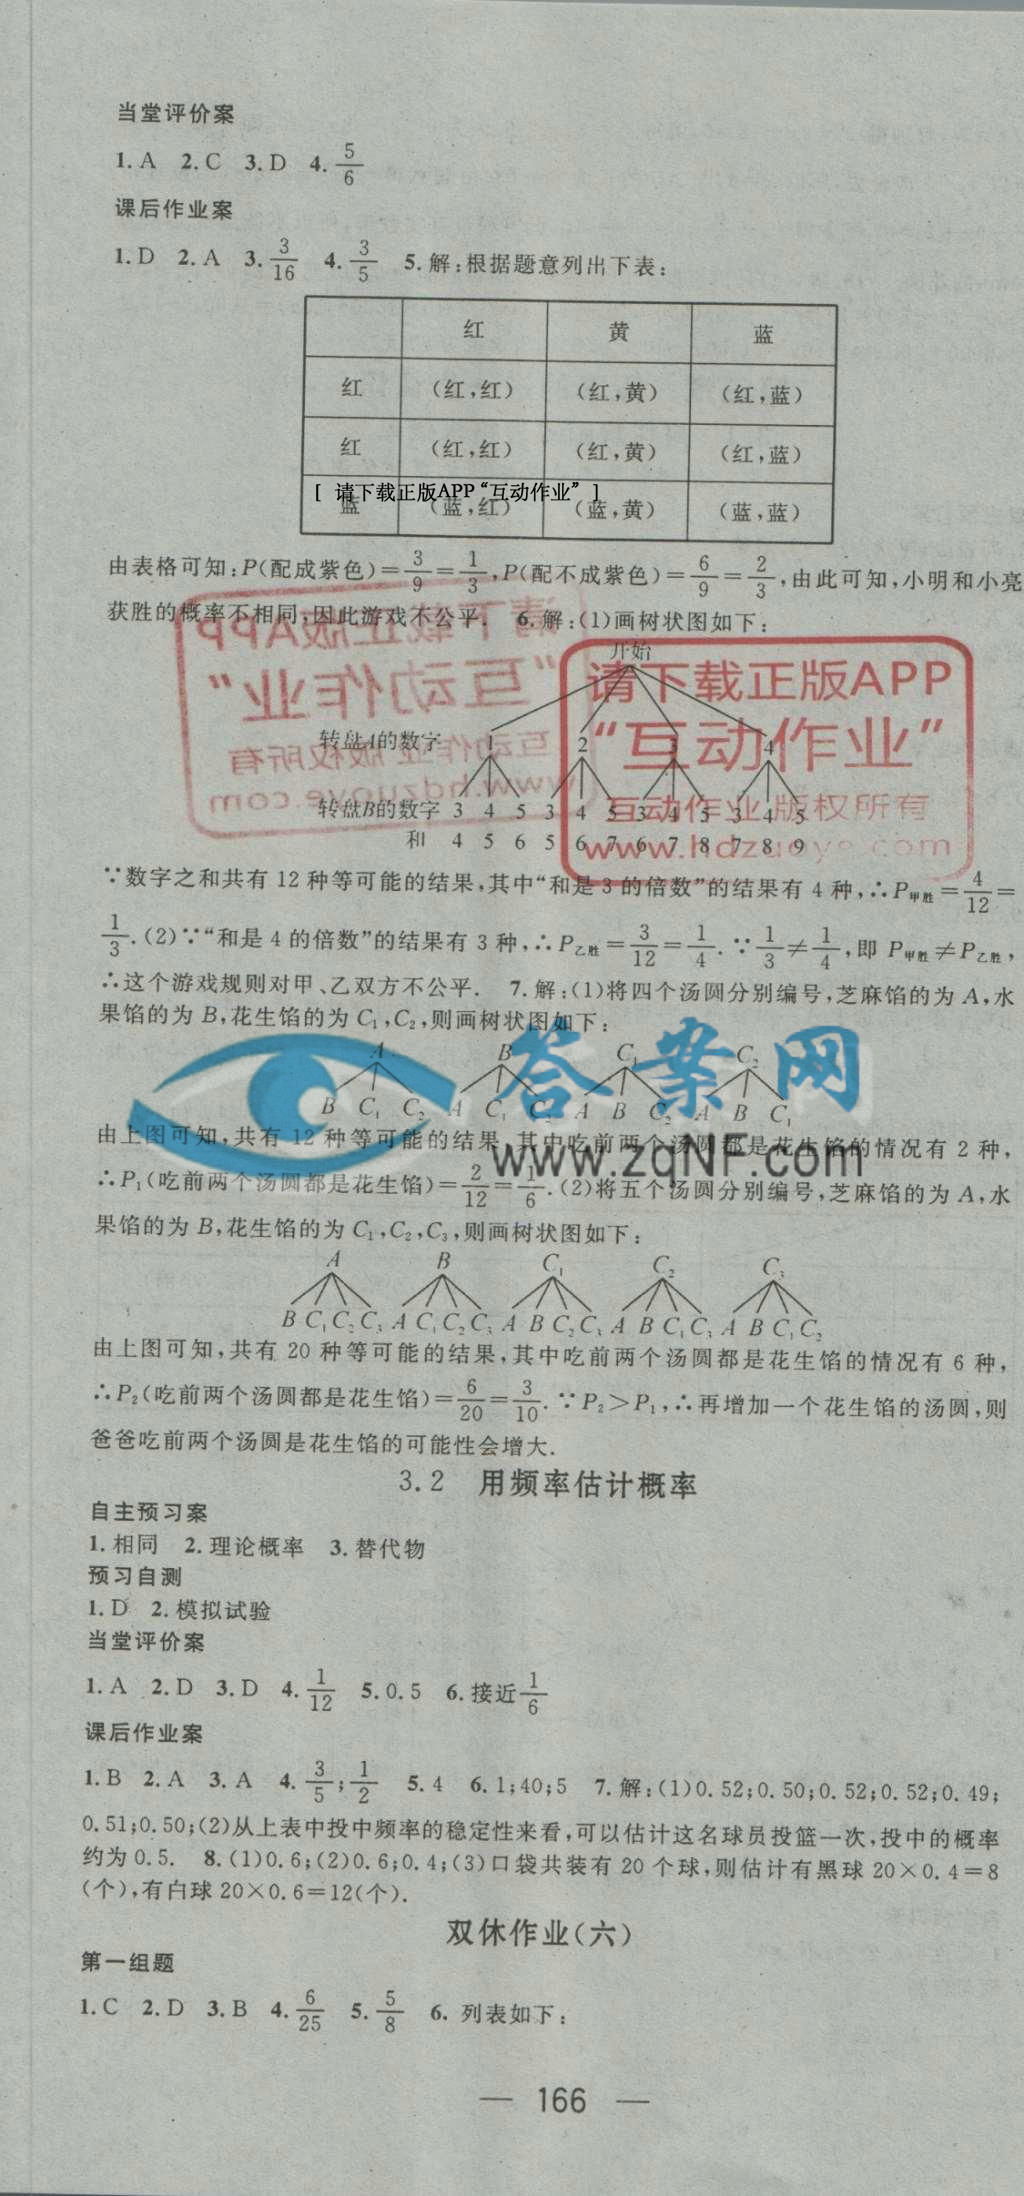 当堂评价案
1.A 2.C 3.D 4. 5/6
课后作业案
1.D 2.A 3. 3/16 4. 3/5 5.解:根据题意列出下表:
红 黄 蓝
红 (红,红) (红,黄) (红,蓝)
红 (红,红) (红,黄) (红,蓝)
[ 请下载正版APP“互动作业” ]
蓝 (蓝,红) (蓝,黄) (蓝,蓝)
由表格可知:P(配成紫色)=3/9=1/3,P(配不成紫色)=6/9=2/3,由此可知,小明和小亮
获胜的概率不相同,因此游戏不公平. 6.解:(1)画树状图如下:
开始
请下载正版APP
“互动作业”
互动作业 版权所有
www.hdzuoye.com
转盘A的数字 1 2 3 4
转盘B的数字 3 4 5 3 4 5 3 4 5 3 4 5
和 4 5 6 5 6 7 6 7 8 7 8 9
∵数字之和共有12种等可能的结果,其中“和是3的倍数”的结果有4种,∴P甲胜=4/12=
1/3.(2)∵“和是4的倍数”的结果有3种,∴P乙胜=3/12=1/4.∵1/3≠1/4,即P甲胜≠P乙胜,
∴这个游戏规则对甲、乙双方不公平. 7.解:(1)将四个汤圆分别编号,芝麻馅的为A,水
果馅的为B,花生馅的为C₁,C₂,则画树状图如下:
答案网
www.zqNF.com
A B C₁ C₂
B C₁ C₂ A C₁ C₂ A B C₂ A B C₁
由上图可知,共有12种等可能的结果,其中吃前两个汤圆都是花生馅的情况有2种,
∴P₁(吃前两个汤圆都是花生馅)=2/12=1/6.(2)将五个汤圆分别编号,芝麻馅的为A,水
果馅的为B,花生馅的为C₁,C₂,C₃,则画树状图如下:
A B C₁ C₂ C₃
B C₁ C₂ C₃ A C₁ C₂ C₃ A B C₂ C₃ A B C₁ C₃ A B C₁ C₂
由上图可知,共有20种等可能的结果,其中吃前两个汤圆都是花生馅的情况有6种,
∴P₂(吃前两个汤圆都是花生馅)=6/20=3/10.∵P₂>P₁,∴再增加一个花生馅的汤圆,则
爸爸吃前两个汤圆是花生馅的可能性会增大.
3.2 用频率估计概率
自主预习案
1.相同 2.理论概率 3.替代物
预习自测
1.D 2.模拟试验
当堂评价案
1.A 2.D 3.D 4. 1/12 5.0.5 6.接近1/6
课后作业案
1.B 2.A 3.A 4. 3/5;1/2 5.4 6.1;40;5 7.解:(1)0.52;0.50;0.52;0.52;0.49;
0.51;0.50;(2)从上表中投中频率的稳定性来看,可以估计这名球员投篮一次,投中的概率
约为0.5. 8.(1)0.6;(2)0.6;0.4;(3)口袋共装有20个球,则估计有黑球20×0.4=8
(个),有白球20×0.6=12(个).
双休作业(六)
第一组题
1.C 2.D 3.B 4. 6/25 5. 5/8 6. 列表如下:
— 166 —